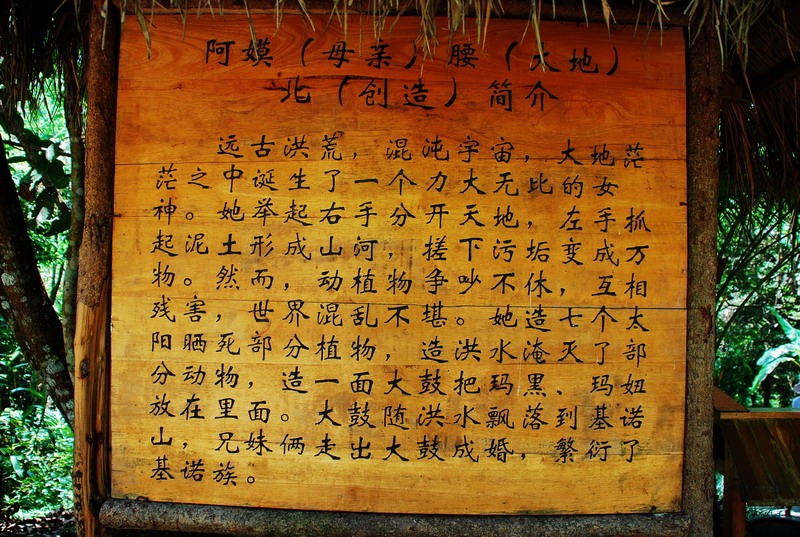 阿嫫（母亲）腰（大地）
北（创造）简介
远古洪荒，混沌宇宙，大地茫
茫之中诞生了一个力大无比的女
神。她举起右手分开天地，左手抓
起泥土形成山河，搓下污垢变成万
物。然而，动植物争吵不休，互相
残害，世界混乱不堪。她造七个太
阳晒死部分植物，造洪水淹灭了部
分动物，造一面大鼓把玛黑、玛妞
放在里面。大鼓随洪水飘落到基诺
山，兄妹俩走出大鼓成婚，繁衍了
基诺族。